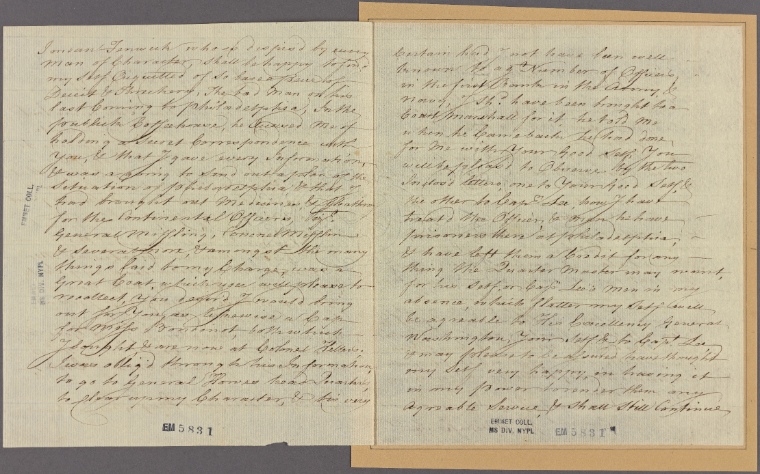 I mean Fenwick who is despised by every
Man of Character, I shall be happy to find
my Self Acquitted of So base a piece of
Deceit & Treachery, The bad Man on his
last Coming to philadelphia, In the
publick Coffehouse, he accused Me of
holding a Secret Correspondence with
You, & that I gave every Information
& was a going to Send out a plan of the
Situation of philadelphia & that I
had brought out Medicines &
for the Continental Officers,
General Miffling,
& Several more, & amongst the many
things laid to my Charge, was a
Great Coat, which you will please to
recollect, You desired I would bring
out for You, as likewise a Cap
for Miss Boudinot, both which
I bought & are now at Colonel
I was oblig'd through his Information
to go to General Howes head Quarters
to Clear up my Character, & his very
Certain had I not have been well
known to a Number of Officers
in the first Rank in the Army &
Navy, I Sh'd have been brought to a
Court Marshall for it, he told Me
when he Came back he had done
for Me with Your Good Self, You
will be pleased to Observe by the two
Inclosed letters, one to Your Good Self, &
the other to Capt Lee, how I have
treated the Officers & Men he have
prisoners there at philadelphia,
& have left them a Credit for any
thing the Quarter Master may want,
for his Self, or Capt Lee's Men in my
absence, which I flatter my Self will
be agreable to His Excellency General
Washington, Your Self & to Capt Lee
& may please to be assured have thought
my Self very happy in having it
in my power to render them any
Agreable Service, & Shall Still Continue
EMMET COLL.
MS DIV. NYPL
EM 5831
EMMET COLL.
MS DIV. NYPL
EM 5831